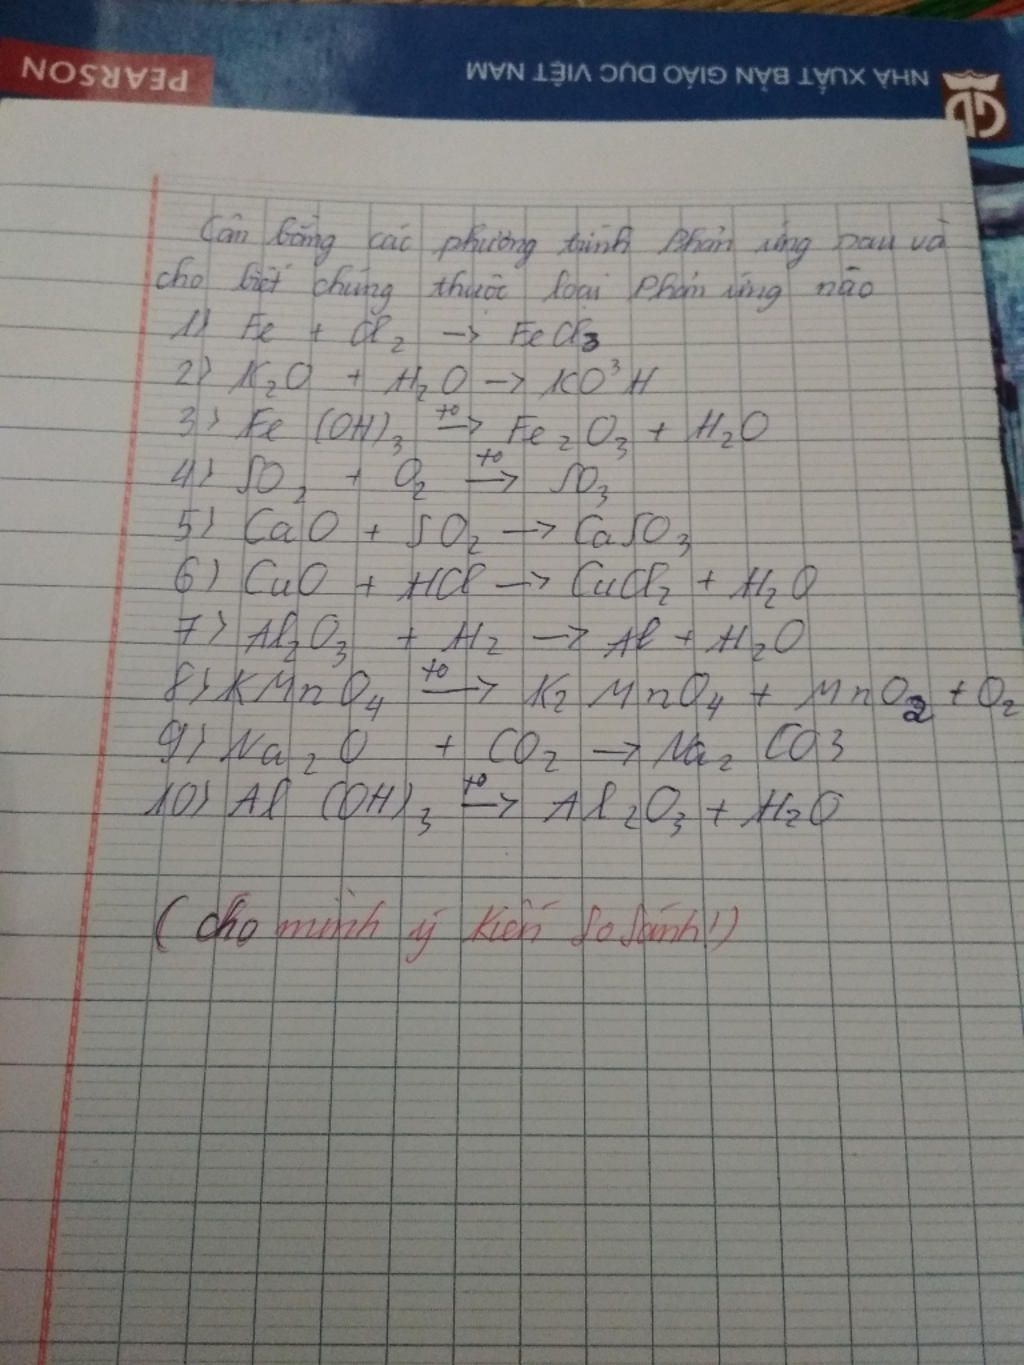 PEARSON
NHÀ XUẤT BẢN GIÁO DỤC VIỆT NAM
Cân bằng các phương trình phản ứng sau và
cho biết chúng thuộc loại phản ứng nào
1) Fe + Cl₂ → FeCl₃
2) K₂O + H₂O → KOH
3) Fe(OH)₃ →(t⁰) Fe₂O₃ + H₂O
4) SO₂ + O₂ →(t⁰) SO₃
5) CaO + SO₂ → CaSO₃
6) CuO + HCl → CuCl₂ + H₂O
7) Al₂O₃ + H₂ → Al + H₂O
8) KMnO₄ →(t⁰) K₂MnO₄ + MnO₂ + O₂
9) Na₂O + CO₂ → Na₂CO3
10) Al(OH)₃ →(t⁰) Al₂O₃ + H₂O
(cho mình ý kiến so sánh!)